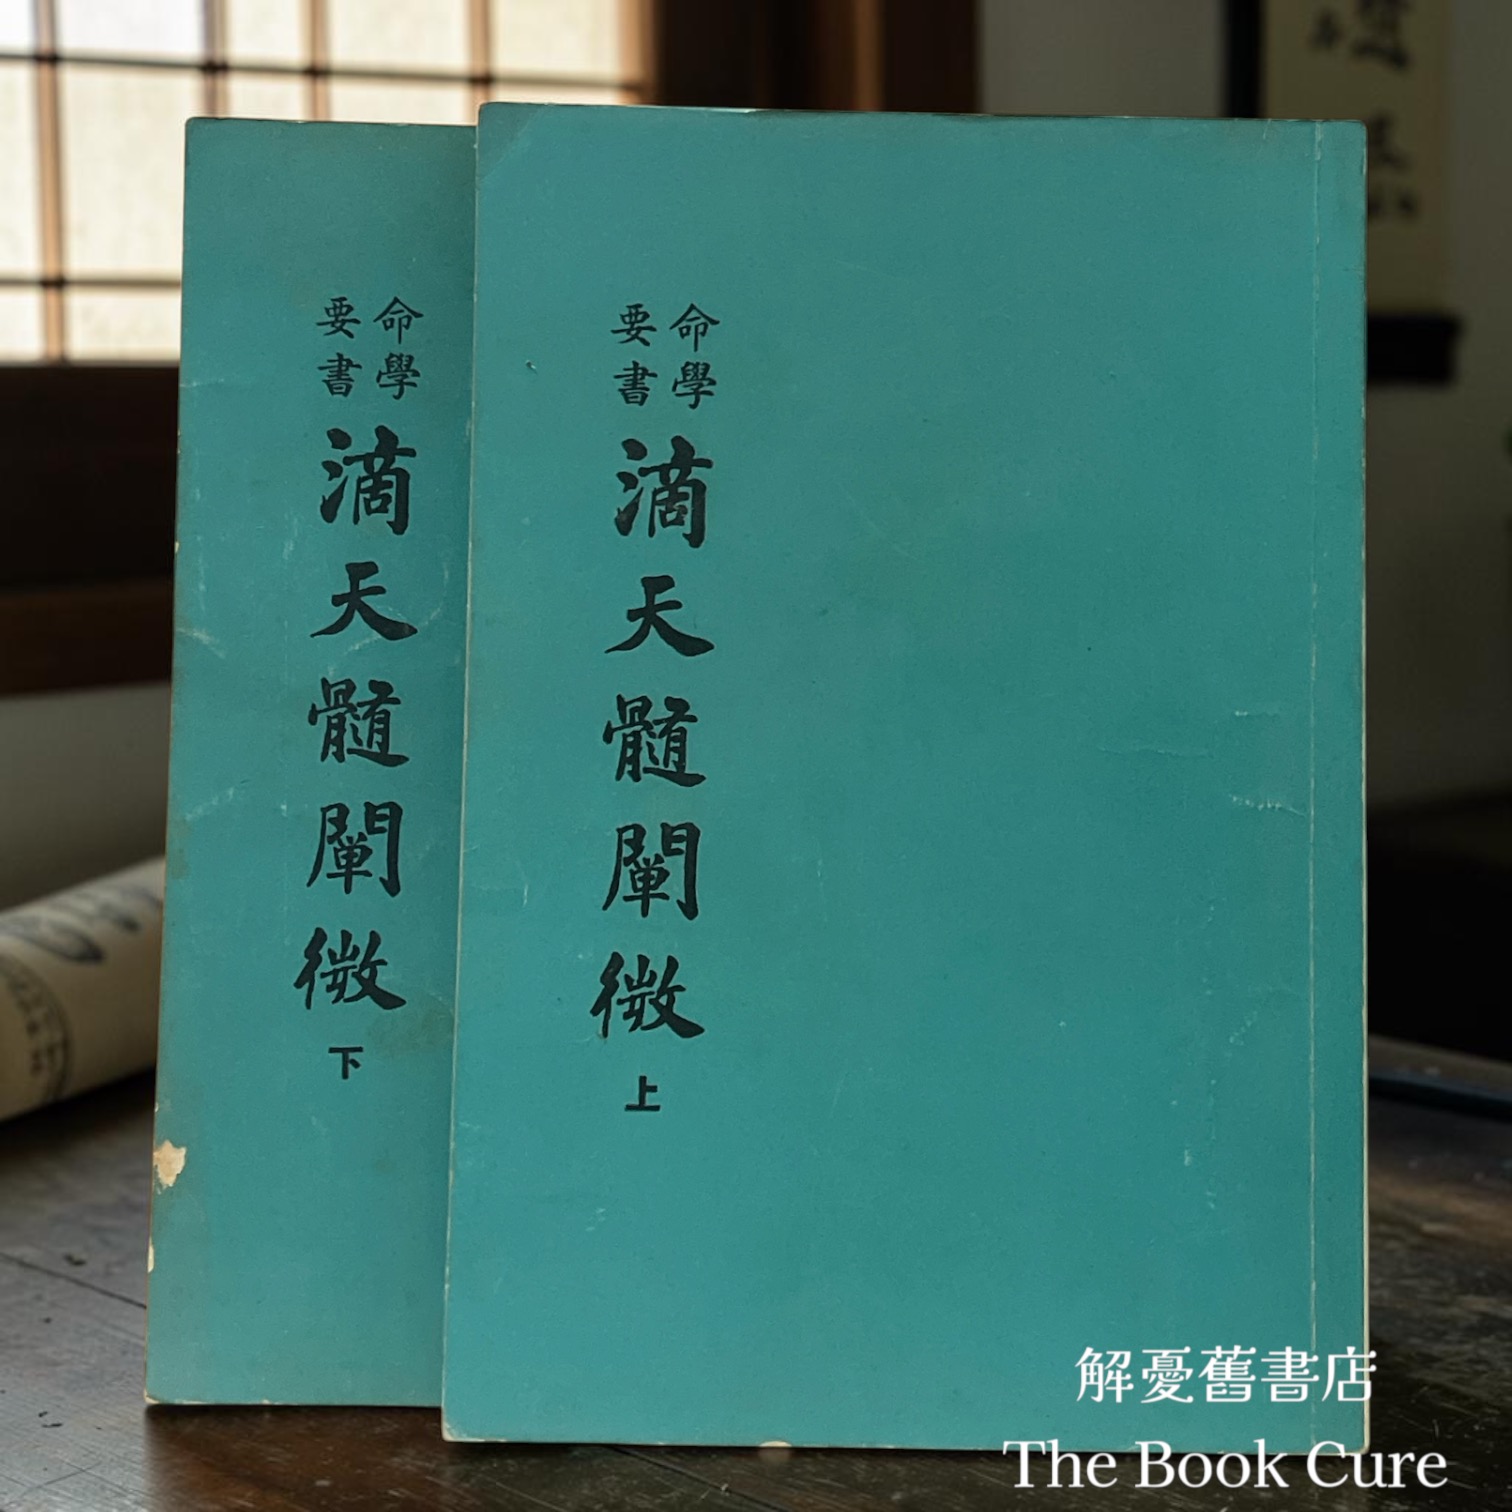 命學
要書
滴天髓闡微
上
命學
要書
滴天髓闡微
下
解憂舊書店
The Book Cure